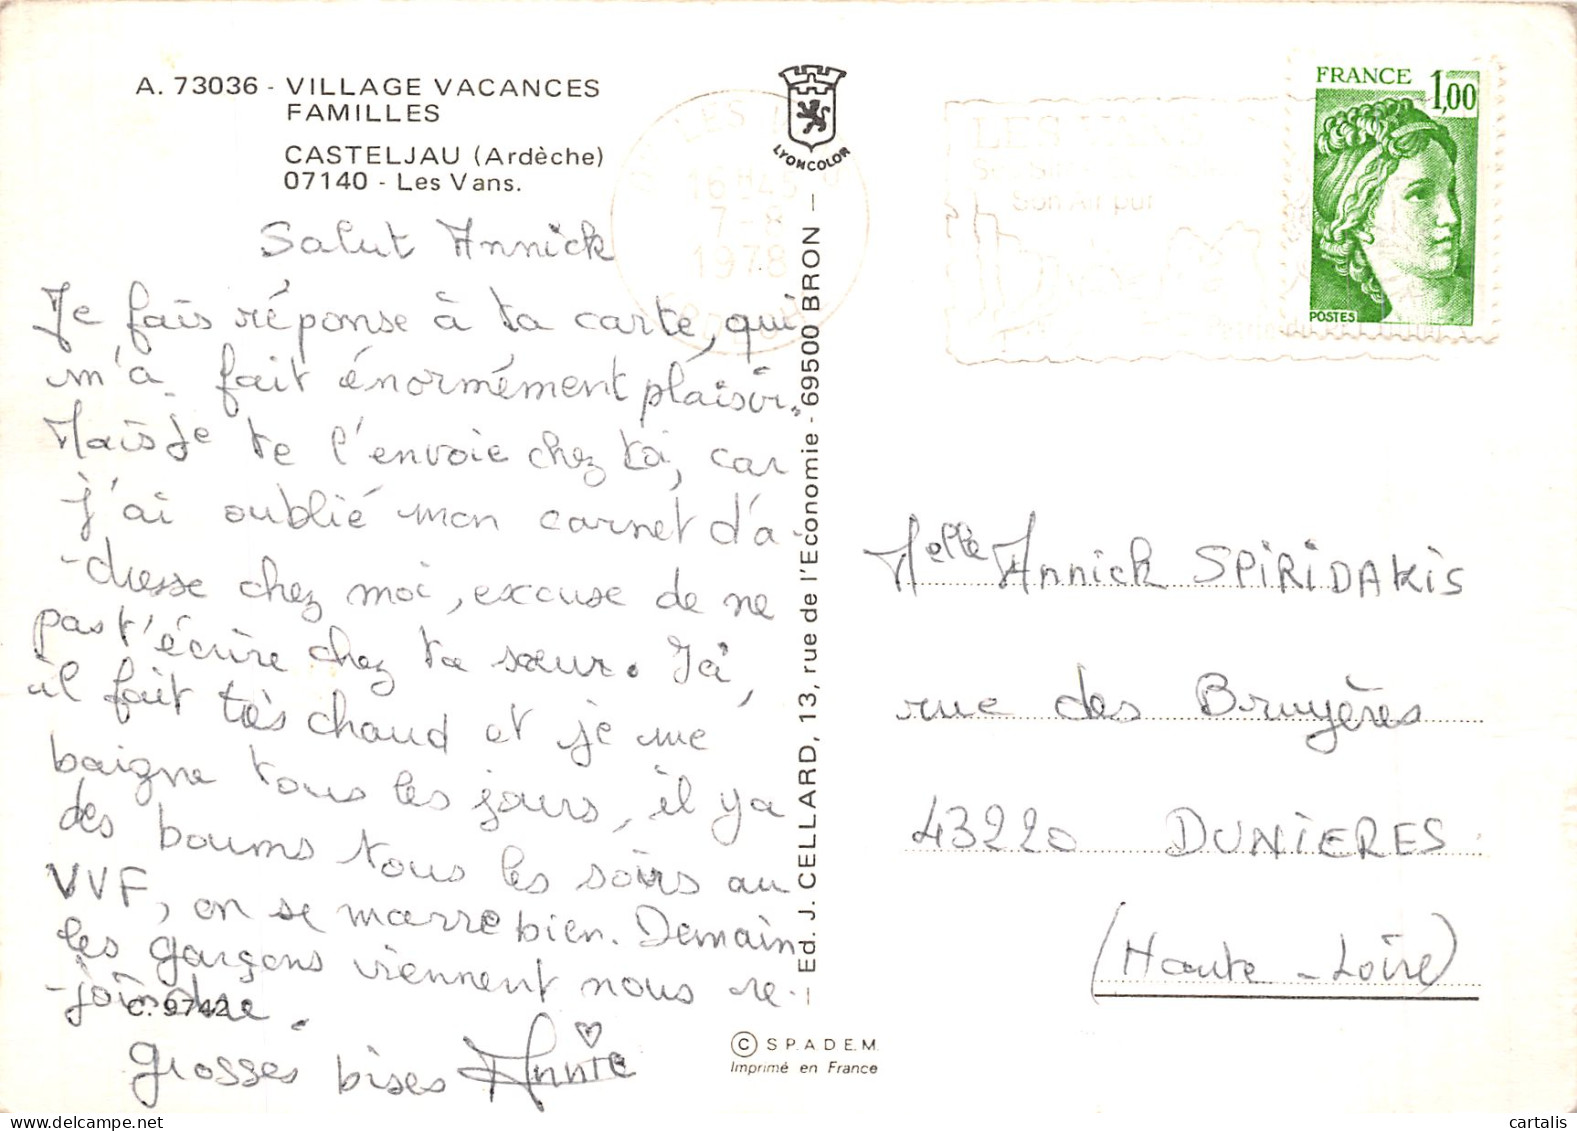 A. 73036 - VILLAGE VACANCES
FAMILLES
CASTELJAU (Ardèche)
07140 - Les Vans.
Salut Annick
Je fais réponse à ta carte, qui
m'a fait énormément plaisir.
Mais je te l'envoie chez toi, car
j'ai oublié mon carnet d'a-
-dresse chez moi, excuse de ne
pas t'écrire chez ta sœur. Ià,
il fait très chaud et je me
baigne tous les jours, il y a
des boums tous les soirs au
VVF, on se marre bien. Demain
les garçons viennent nous re-
-joindre.
C. 9742
Grosses bises Annie
LYONCOLOR
— Ed. J. CELLARD, 13, rue de l'Economie - 69500 BRON —
© S.P.A.D.E.M.
Imprimé en France
LES VANS
16H45
7-8
1978
Son Air pur
FRANCE 1,00
POSTES
Melle Annick SPIRIDAKIS
rue des Bruyères
43220 DUNIERES
(Haute-Loire)
cartalis